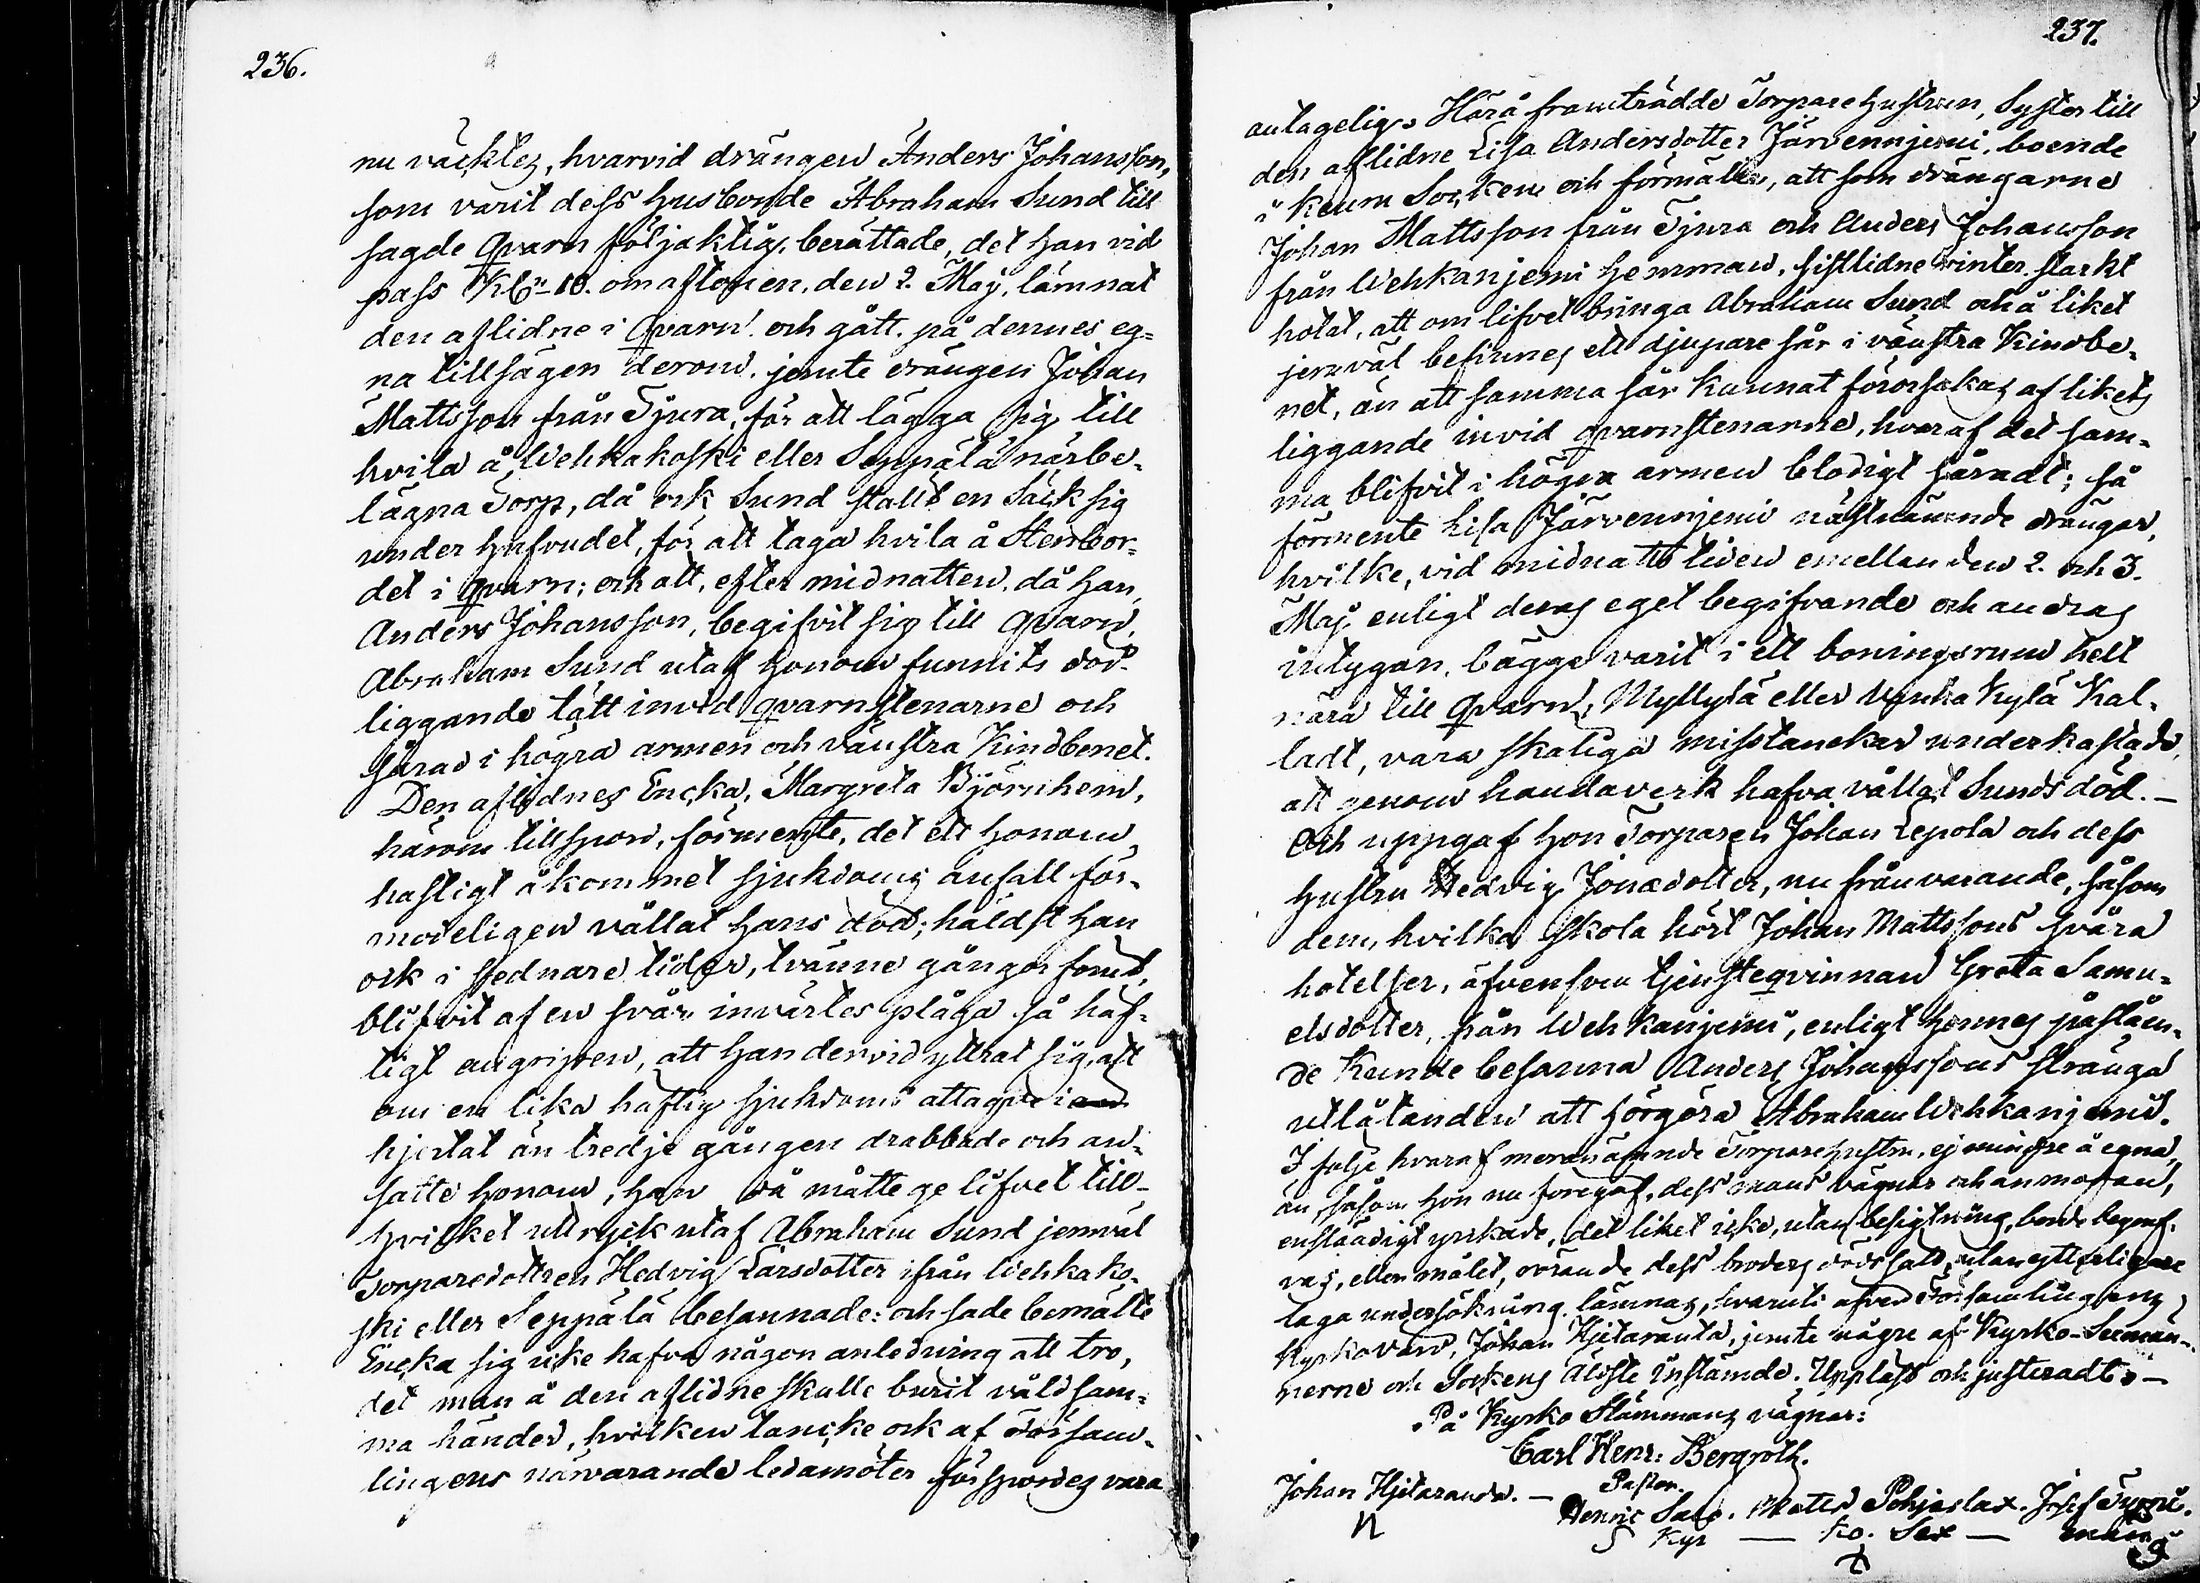 236.
nu väcktes, hvarvid drängen Anders Johansson,
som varit dess husbonde Abraham Sund till
sagde Qvarn följaktlig, berättade, det han vid
pass Kl. 10. om aftonen, den 2. Maj, lämnat
den aflidne i Qvarn och gått, på dennes eg-
na tillsägen derom, jemte drängen Johan
Mattsson från Tjura, för att lägga sig till
hvila å Wehkakoski eller Seppälä närbe-
lägna Torp, då ock Sund ställt en Säck sig
under hufvudet, för att taga hvila å Stenbor-
det i qvarn; och att, efter midnatten, då han,
Anders Johansson, begifvit sig till Qvarn,
Abraham Sund utaf honom funnits död
liggande tätt invid qvarnstenarne och
sårad i högra armen och vänstra Kindbenet.
Den aflidnes Encka, Margreta Björnhem,
härom tillspord, förmente, det ett honom
hastigt åkommet sjukdoms anfall för-
modeligen vållat hans död; häldst han
ock i sednare tider, tvänne gånger förut,
blifvit af en svår invärtes plåga så häf-
tigt angripen, att han dervid yttrat sig, att
om en lika häftig sjukdoms attaque i
hjertat än tredje gången drabbade och an-
satte honom, han då måtte ge lifvet till-
hvilket uttryck utaf Abraham Sund jemväl
Torparedottren Hedvig Larsdotter ifrån Wehkako-
ski eller Seppälä besannade: och sade bemälte
Encka sig icke hafva någon anledning att tro,
det man å den aflidne skulle burit våldsam-
ma händer, hvilken tancke ock af Försam-
lingens närvarande ledamöter förspordes vara
237.
antagelig. Härå framträdde Torparehustrun, Syster till
den aflidne Lisa Andersdotter Järvennjemi, boende
i Keuru Socken och förmälte, att som drängarne
Johan Mattsson från Tjura och Anders Johansson
från Wehkanjemi hemman, sistlidne vinter starkt
hotat, att om lifvet bringa Abraham Sund och å liket
jemväl befinnes ett djupare sår i vänstra Kindbe-
net, än att samma sår kunnat förorsakas af likets
liggande invid qvarnstenarne, hvaraf det sam-
ma blifvit i högra armen blodigt såradt; så
förmente Lisa Järvennjemi nästnämnde drängar,
hvilke, vid midnatts tiden emellan den 2. och 3.
Maj, enligt deras eget begifvande och andras
intygan, bägge varit i ett boningsrum helt
nära till Qvarn, Myllylä eller Kylä Kal-
ladt, vara skäliga misstanckar underkastade,
att genom handaverk hafva vållat Sunds död. —
Och uppgaf hon Torparen Johan Lepola och dess
hustru Hedvig Jonædotter, nu frånvarande, såsom
dem, hvilka skola hört Johan Mattssons svåra
hotelser, äfvensom tjensteqvinnan Greta Samu-
elsdotter, från Wehkanjemi, enligt hennes påståen-
de kunde besanna Anders Johanssons stränga
utlåtanden att förgöra Abraham Wehkanjemi.
I följe hvaraf meranämnde Torparehustru, ej mindre å egna,
än, såsom hon nu föregaf, dess mans vägnar och anmodan,
enständigt yrkade, det liket icke, utan besigtning, borde begraf-
vas, eller målet, rörande dess broders dödsfall, utan ytterligare
laga undersökning lämnas, hvaruti äfven Församlingens
Kyrkovärd, Johan Hjetaranta, jemte någre af Kyrko-Sexmän-
nerne och Sockens Äldste instämde. Uppläst och justeradt. —
På Kyrko Stämmans vägnar:
Carl Henr: Bergroth.
Pastor.
Johan Hjetaranta. — Henric Salo. Matts Pohjaslax. Josef
Kyr — ko. Sex — män